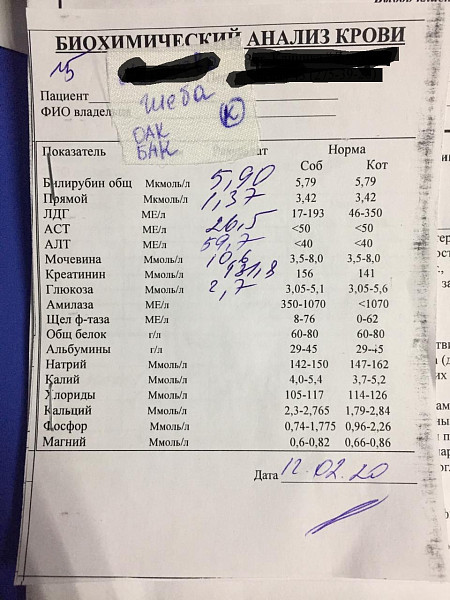 БИОХИМИЧЕСКИЙ АНАЛИЗ КРОВИ
Пациент
ФИО владельца
Шеба
К
ОАК
БАК
Показатель Норма
Соб Кот
Билирубин общ Мкмоль/л 5,90 5,79 5,79
Прямой Мкмоль/л 1,37 3,42 3,42
ЛДГ МЕ/л 17-193 46-350
АСТ МЕ/л 26,5 <50 <50
АЛТ МЕ/л 59,7 <40 <40
Мочевина Ммоль/л 10,6 3,5-8,0 3,5-8,0
Креатинин Ммоль/л 131,8 156 141
Глюкоза Ммоль/л 2,7 3,05-5,1 3,05-5,6
Амилаза МЕ/л 350-1070 <1070
Щел ф-таза МЕ/л 8-76 0-62
Общ белок г/л 60-80 60-80
Альбумины г/л 29-45 29-45
Натрий Ммоль/л 142-150 147-162
Калий Ммоль/л 4,0-5,4 3,7-5,2
Хлориды Ммоль/л 105-117 114-126
Кальций Ммоль/л 2,3-2,765 1,79-2,84
Фосфор Ммоль/л 0,74-1,775 0,96-2,26
Магний Ммоль/л 0,6-0,82 0,66-0,86
Дата 12.02.20